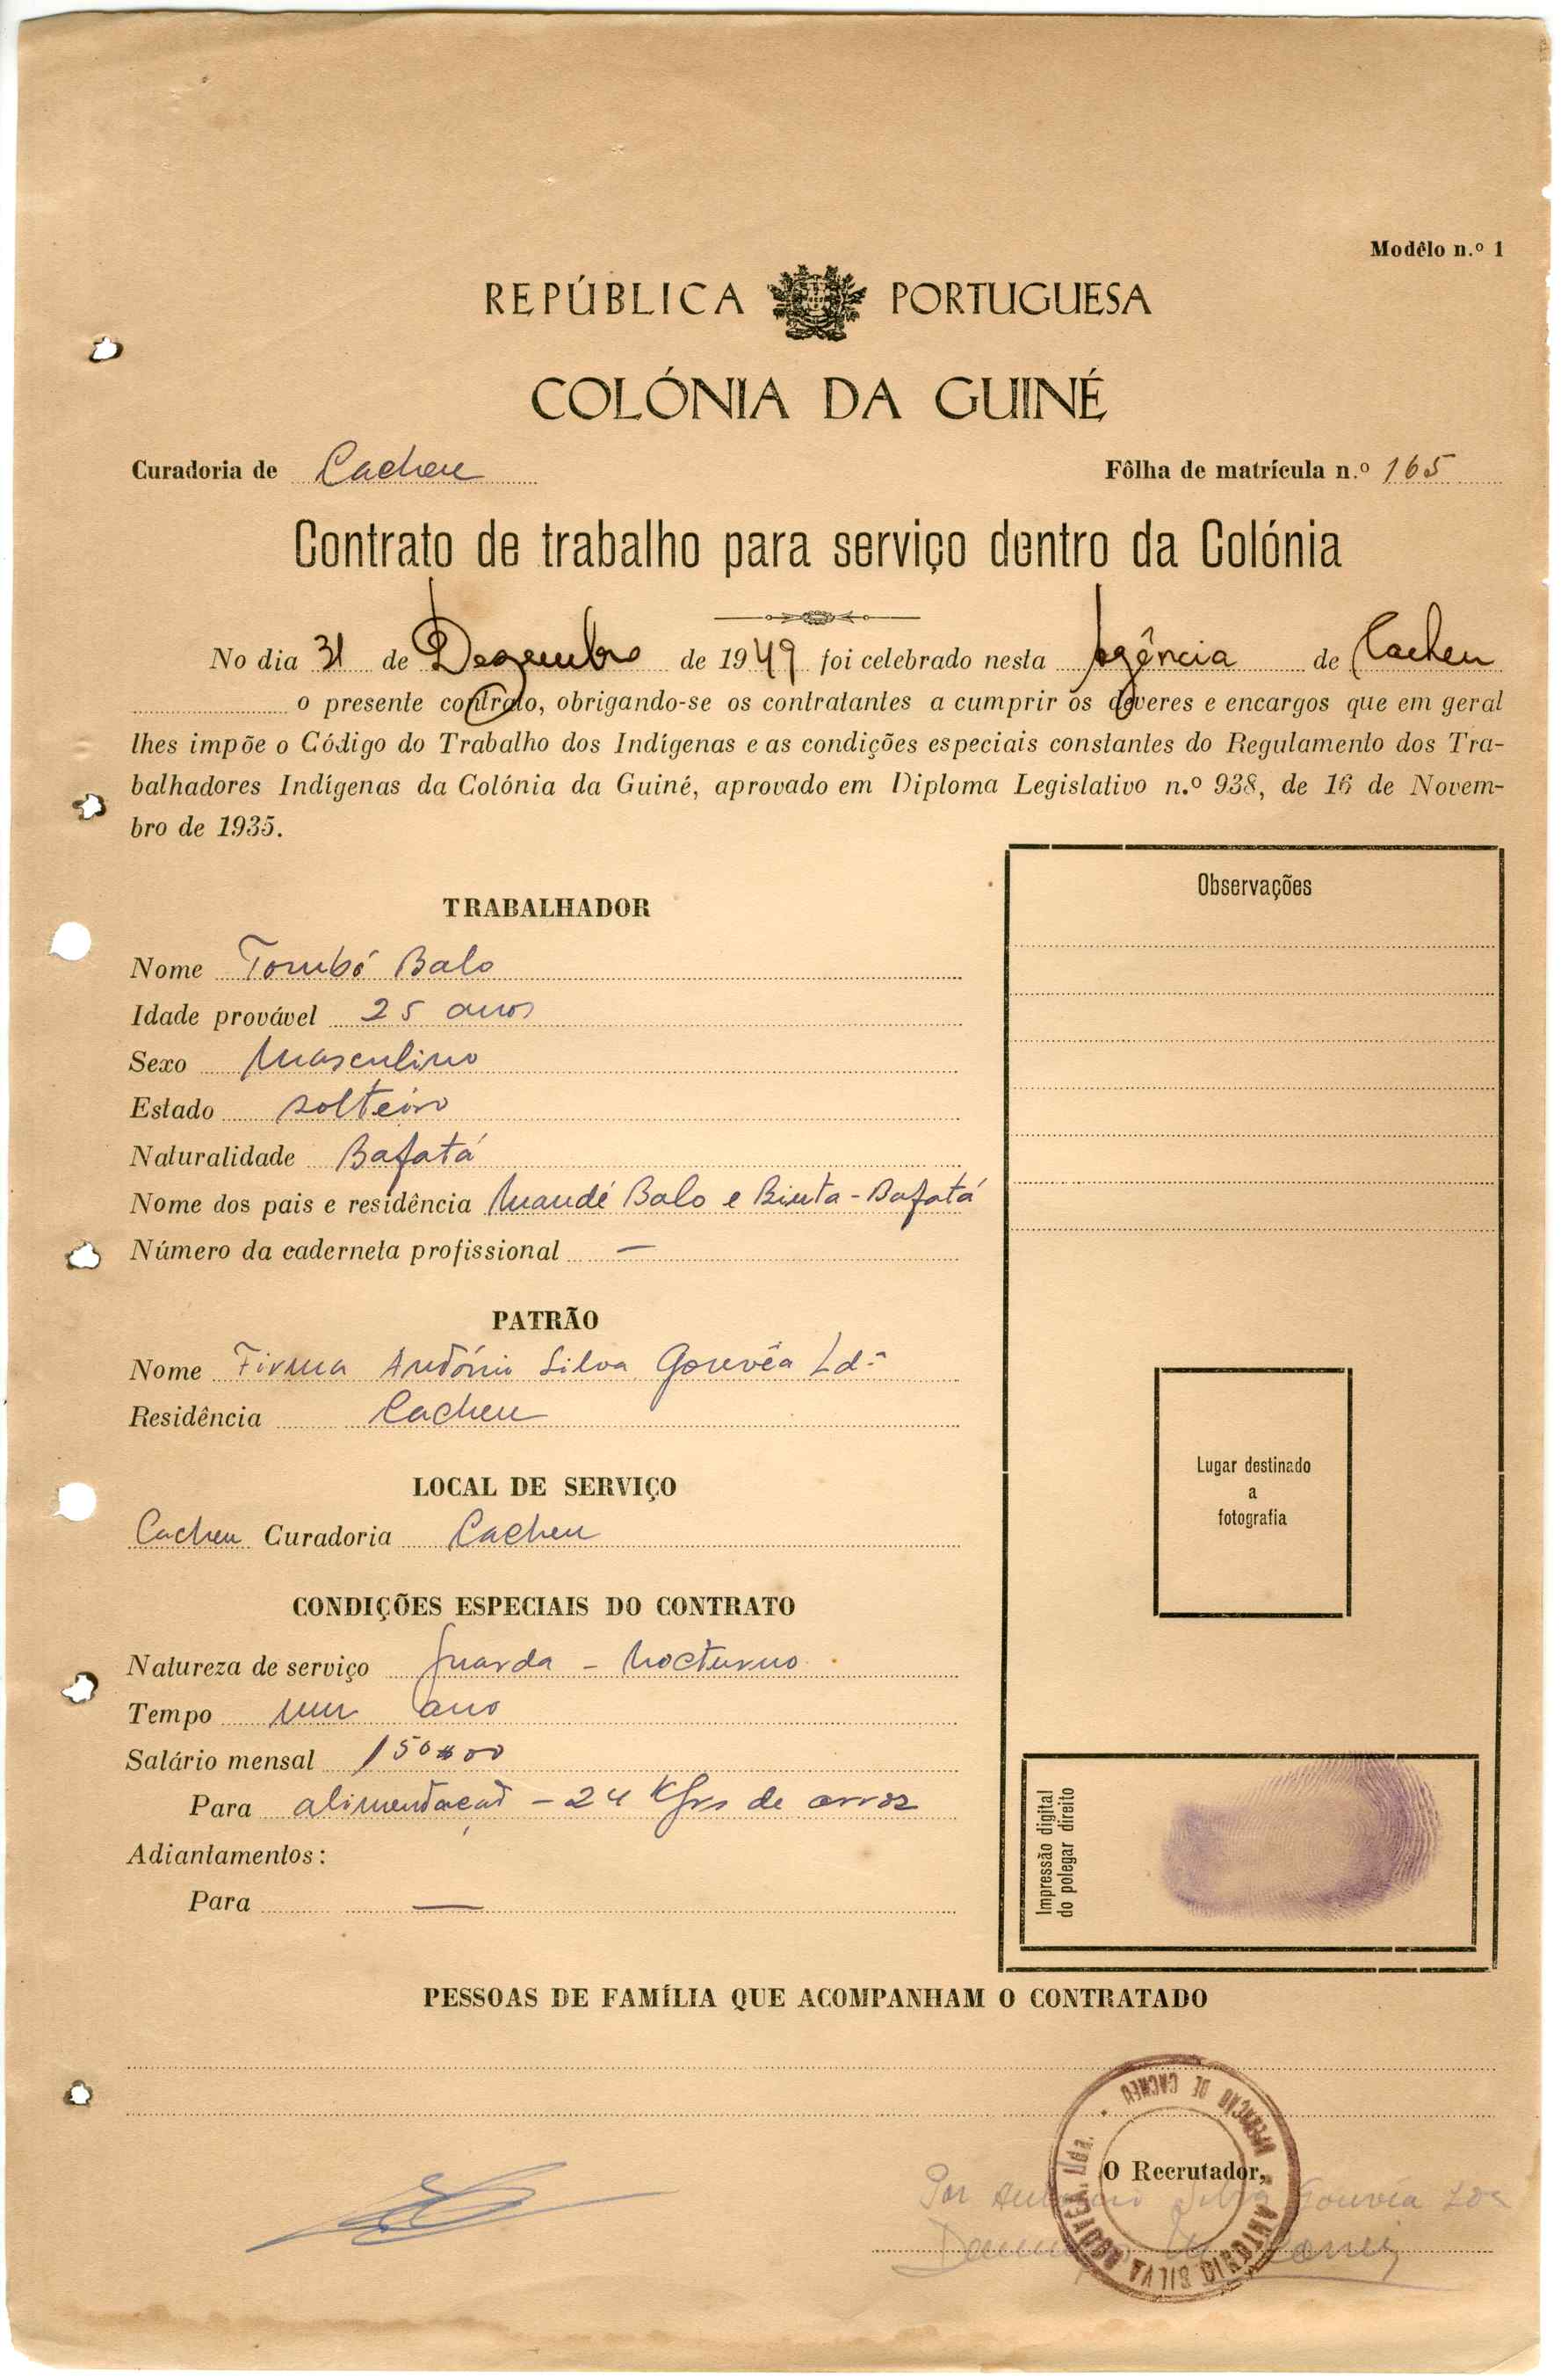 Modêlo n.º 1
REPÚBLICA PORTUGUESA
COLÓNIA DA GUINÉ
Curadoria de Cacheu Fôlha de matrícula n.º 165
Contrato de trabalho para serviço dentro da Colónia
No dia 31 de Dezembro de 1949 foi celebrado nesta Agência de Cacheu
o presente contrato, obrigando-se os contratantes a cumprir os deveres e encargos que em geral
lhes impõe o Código do Trabalho dos Indígenas e as condições especiais constantes do Regulamento dos Tra-
balhadores Indígenas da Colónia da Guiné, aprovado em Diploma Legislativo n.º 938, de 16 de Novem-
bro de 1935.
Observações
TRABALHADOR
Nome Tombó Balo
Idade provável 25 anos
Sexo Masculino
Estado solteiro
Naturalidade Bafatá
Nome dos pais e residência Mandé Balo e Binta - Bafatá
Número da caderneta profissional —
PATRÃO
Nome Firma António Silva Gouvêa Ld.ª
Residência Cacheu
LOCAL DE SERVIÇO
Cacheu Curadoria Cacheu
Lugar destinado
a
fotografia
CONDIÇÕES ESPECIAIS DO CONTRATO
Natureza de serviço Guarda - Nocturno
Tempo um ano
Salário mensal 150$00
Para alimentaçaõ - 24 Kgrs de arroz
Adiantamentos:
Para —
Impressão digital
do polegar direito
PESSOAS DE FAMÍLIA QUE ACOMPANHAM O CONTRATADO
O Recrutador,
Por António Silva Gouvêa Ldª
ANTÓNIO SILVA GOUVEA, Lda. OPERAÇÃO DE CACHEU